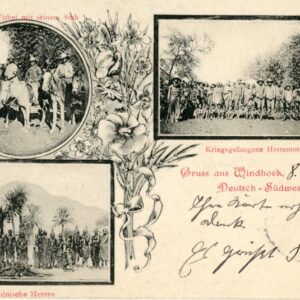 mit seinem Stab
Kriegsgefangene Hottentot
Gruss aus Windhoek, 8.
Deutsch-Südwes
Ihre Karte
dank.
Es grüßt
Herero